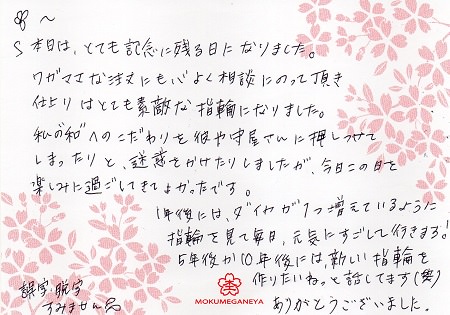 本日は、とても記念に残る日になりました。
ワガママな注文にも心よく相談にのって頂き
仕上りはとても素敵な指輪になりました。
私の"和"へのこだわりを彼や守屋さんに押しつけて
しまったりと、迷惑をかけたりしましたが、今日この日を
楽しみに過ごしてきてよかったです。
1年後には、ダイヤが1つ増えているように
指輪を見て毎日、元気にすごして行きます!
5年後か10年後には、新しい指輪を
作りたいね。と話してます(笑)
ありがとうございました。
誤字・脱字
すみません
MOKUMEGANEYA